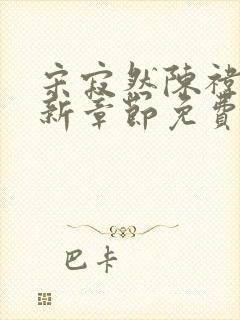 宋寂然陳禕
新章節免費
巴卡